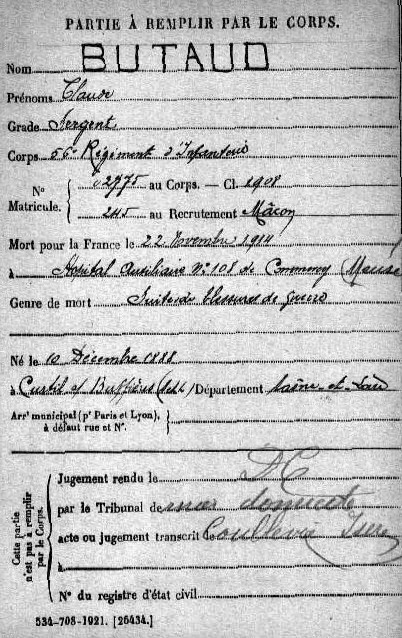 PARTIE À REMPLIR PAR LE CORPS.
Nom BUTAUD
Prénoms Claude
Grade Sergent
Corps 56e Régiment d'Infanterie
N° Matricule. { 02775 au Corps. — Cl. 1908
245 au Recrutement Mâcon
Mort pour la France le 22 Novembre 1914
à Hôpital Auxiliaire N° 108 de Commercy (Meuse
Genre de mort Suites de blessures de Guerre
Né le 10 Décembre 1888
à Curtil s/ Buffières Département Saône-et-Loire
Arr' municipal (p' Paris et Lyon),
à défaut rue et N°.
Cette partie n'est pas à remplir par le Corps.
Jugement rendu le
par le Tribunal de
acte ou jugement transcrit le
à
N° du registre d'état civil
534-708-1921. [26434.]